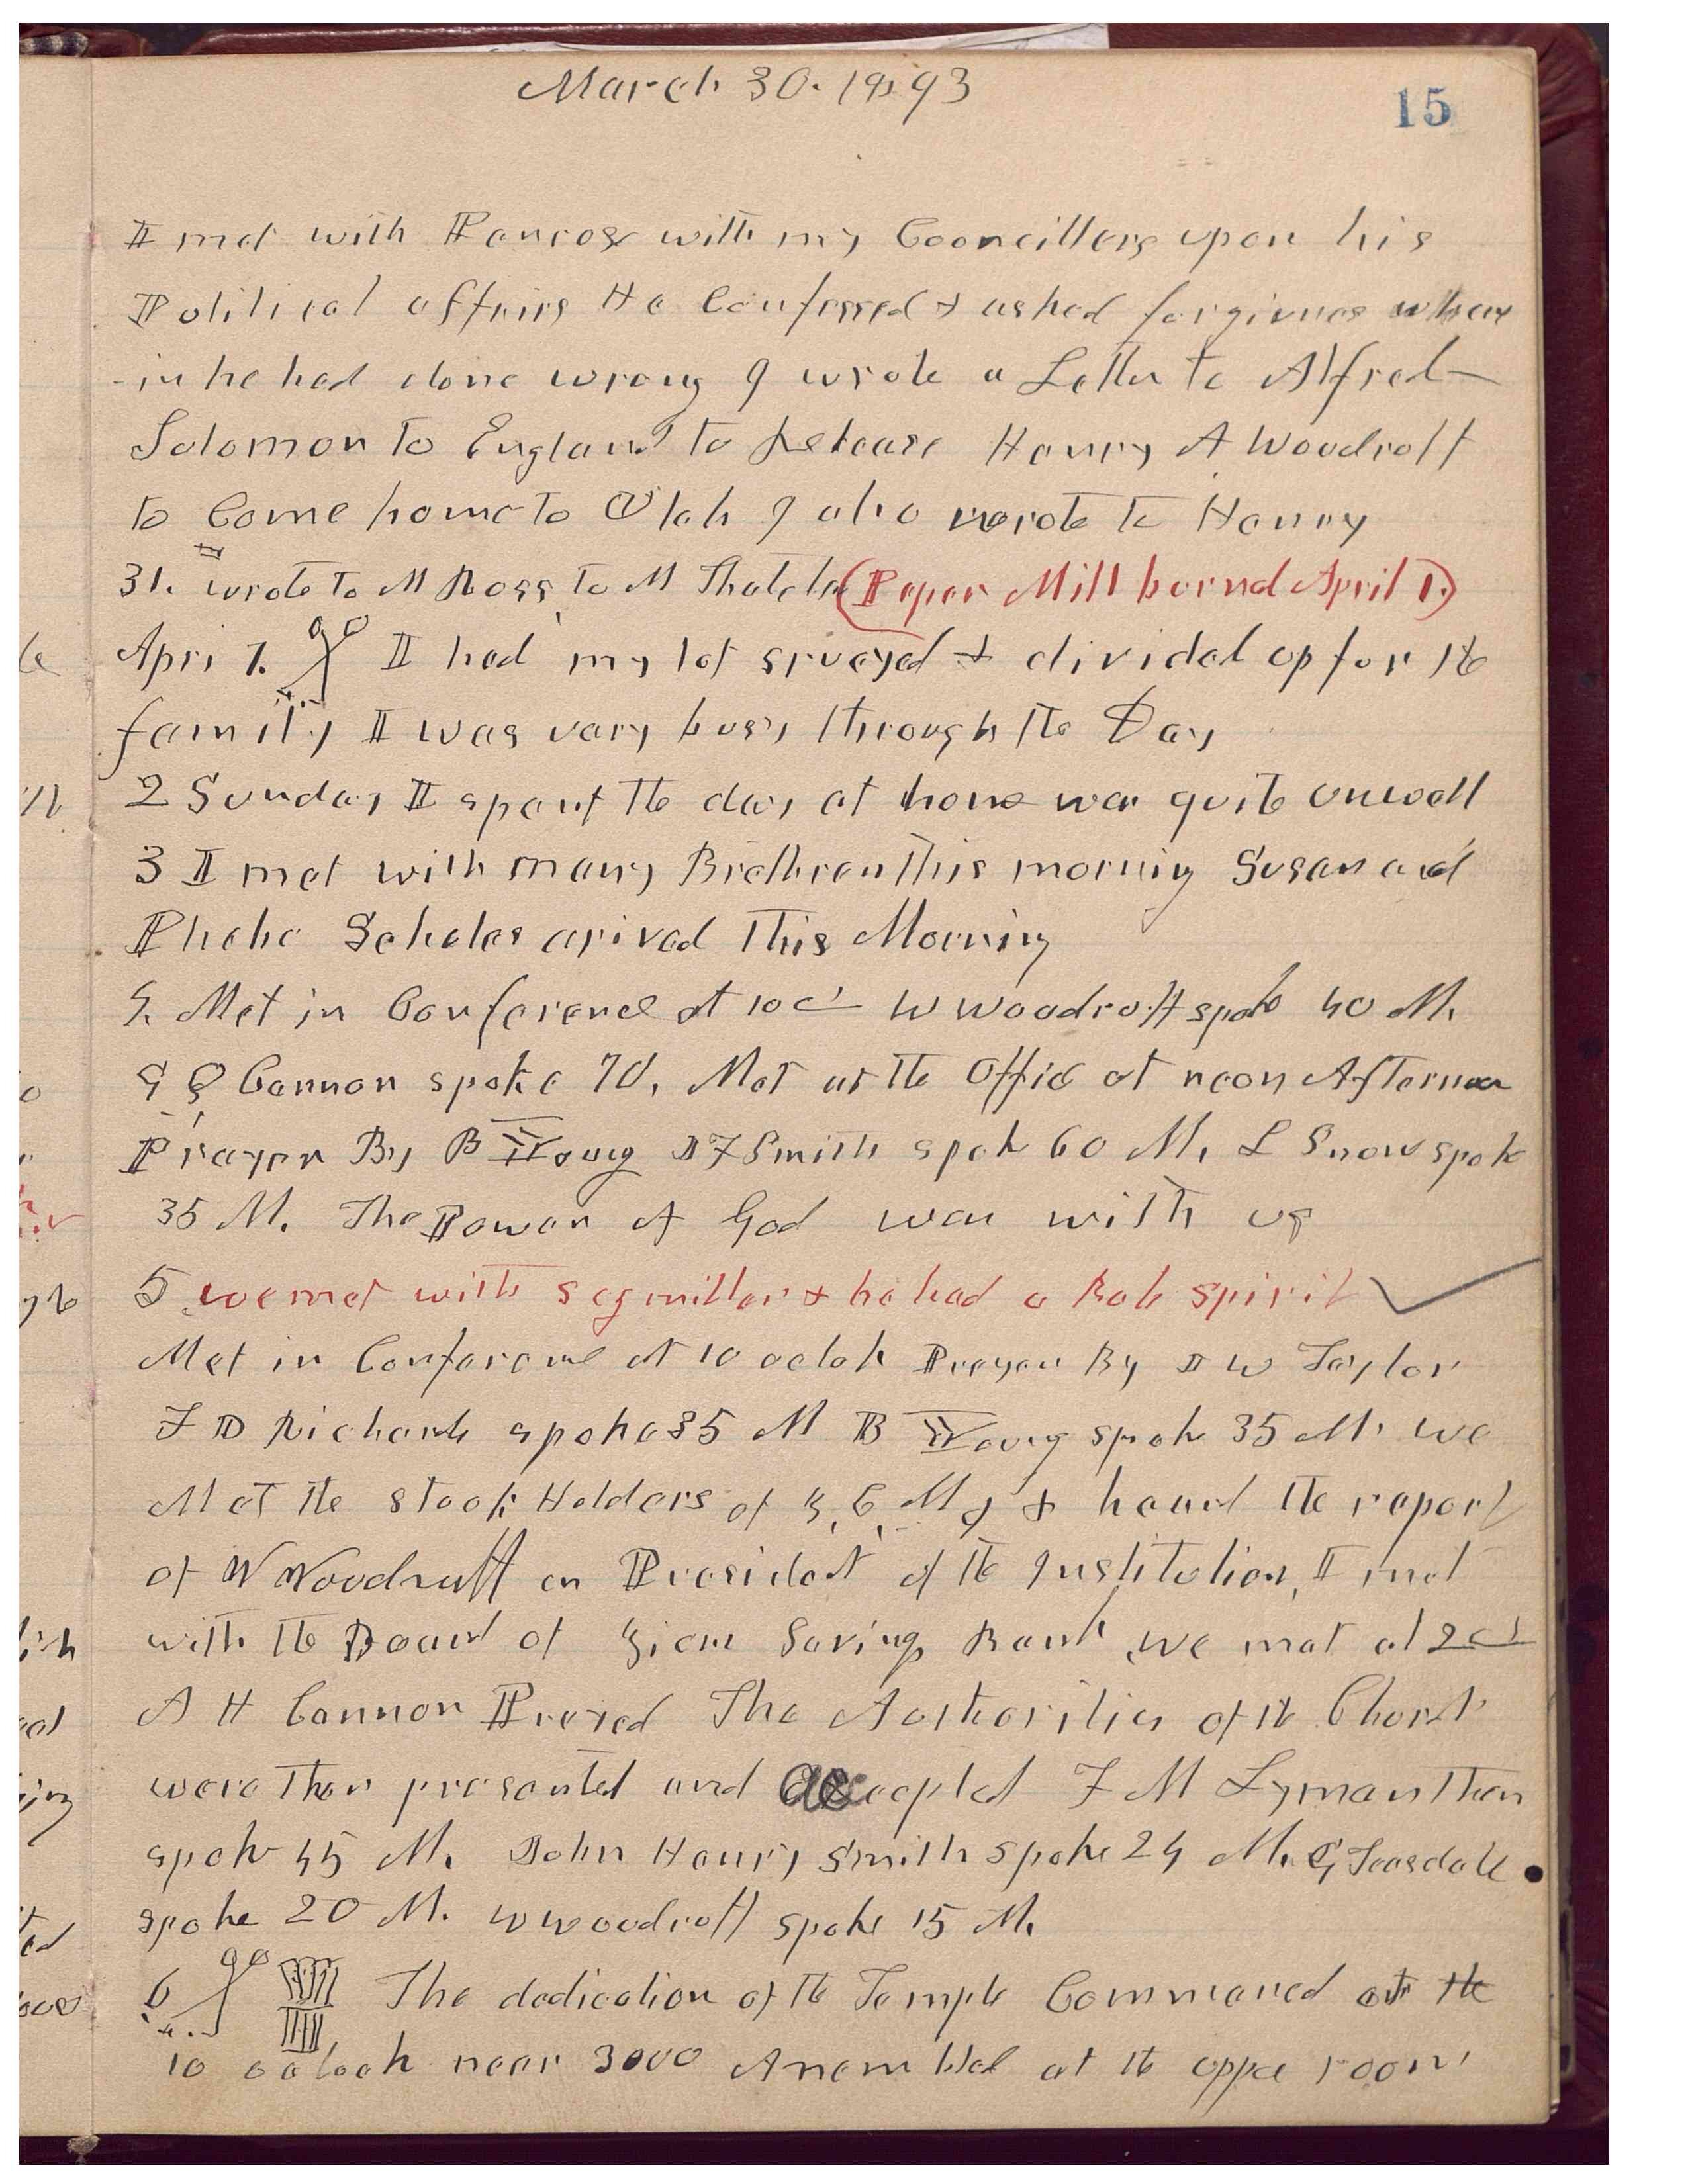 March 30. 1893
15
I met with Penrose with my Councillors upon his
Political affairs He Confessed & asked forgivnes where
-in he had done wrong I wrote a Letter to Alfred
Solomon to England to Release Henry A Woodruff
to Come home to Utah I also wrote to Henry
31. wrote to M Ross, to M Thatcher (Paper Mill burnd April 1.)
Apri 1. I had my lot srveyed & divided up for the
family I was vary busy through the Day
2 Sunday I spent the day at home was quite unwell
3 I met with many Brethren this morning Susan and
Phebe Scholes arived This Morning
4. Met in Conference at 10 oc W Woodruff spoke 40 M.
G Q Cannon spoke 70. Met at the Office at noon Afternoon
Prayer By B Young J F Smith spok 60 M. L Snow spok
35 M. The Power of God was with us
5 we met with Segmiller & he had a Bad spirit
Met in Conference at 10 oclok Prayer By J W Taylor
F D Richards spoke 35 M B Young spok 35 M. we
Met the stock Holders of Z, C, M I & heard the report
of W Woodruff as President of the Institution, I met
with the Board of Zions Savings Bank we met at 2 oc
A H Cannon Prayed The Authorities of the Church
were then presented and accepted F M Lyman then
spok 45 M. John Henry Smith spoke 24 M. G Teasdale
spoke 20 M. W Woodruff spoke 15 M.
6 The dedication of the Temple Commenced at the
10 oclock near 3000 Assembled at the upper room